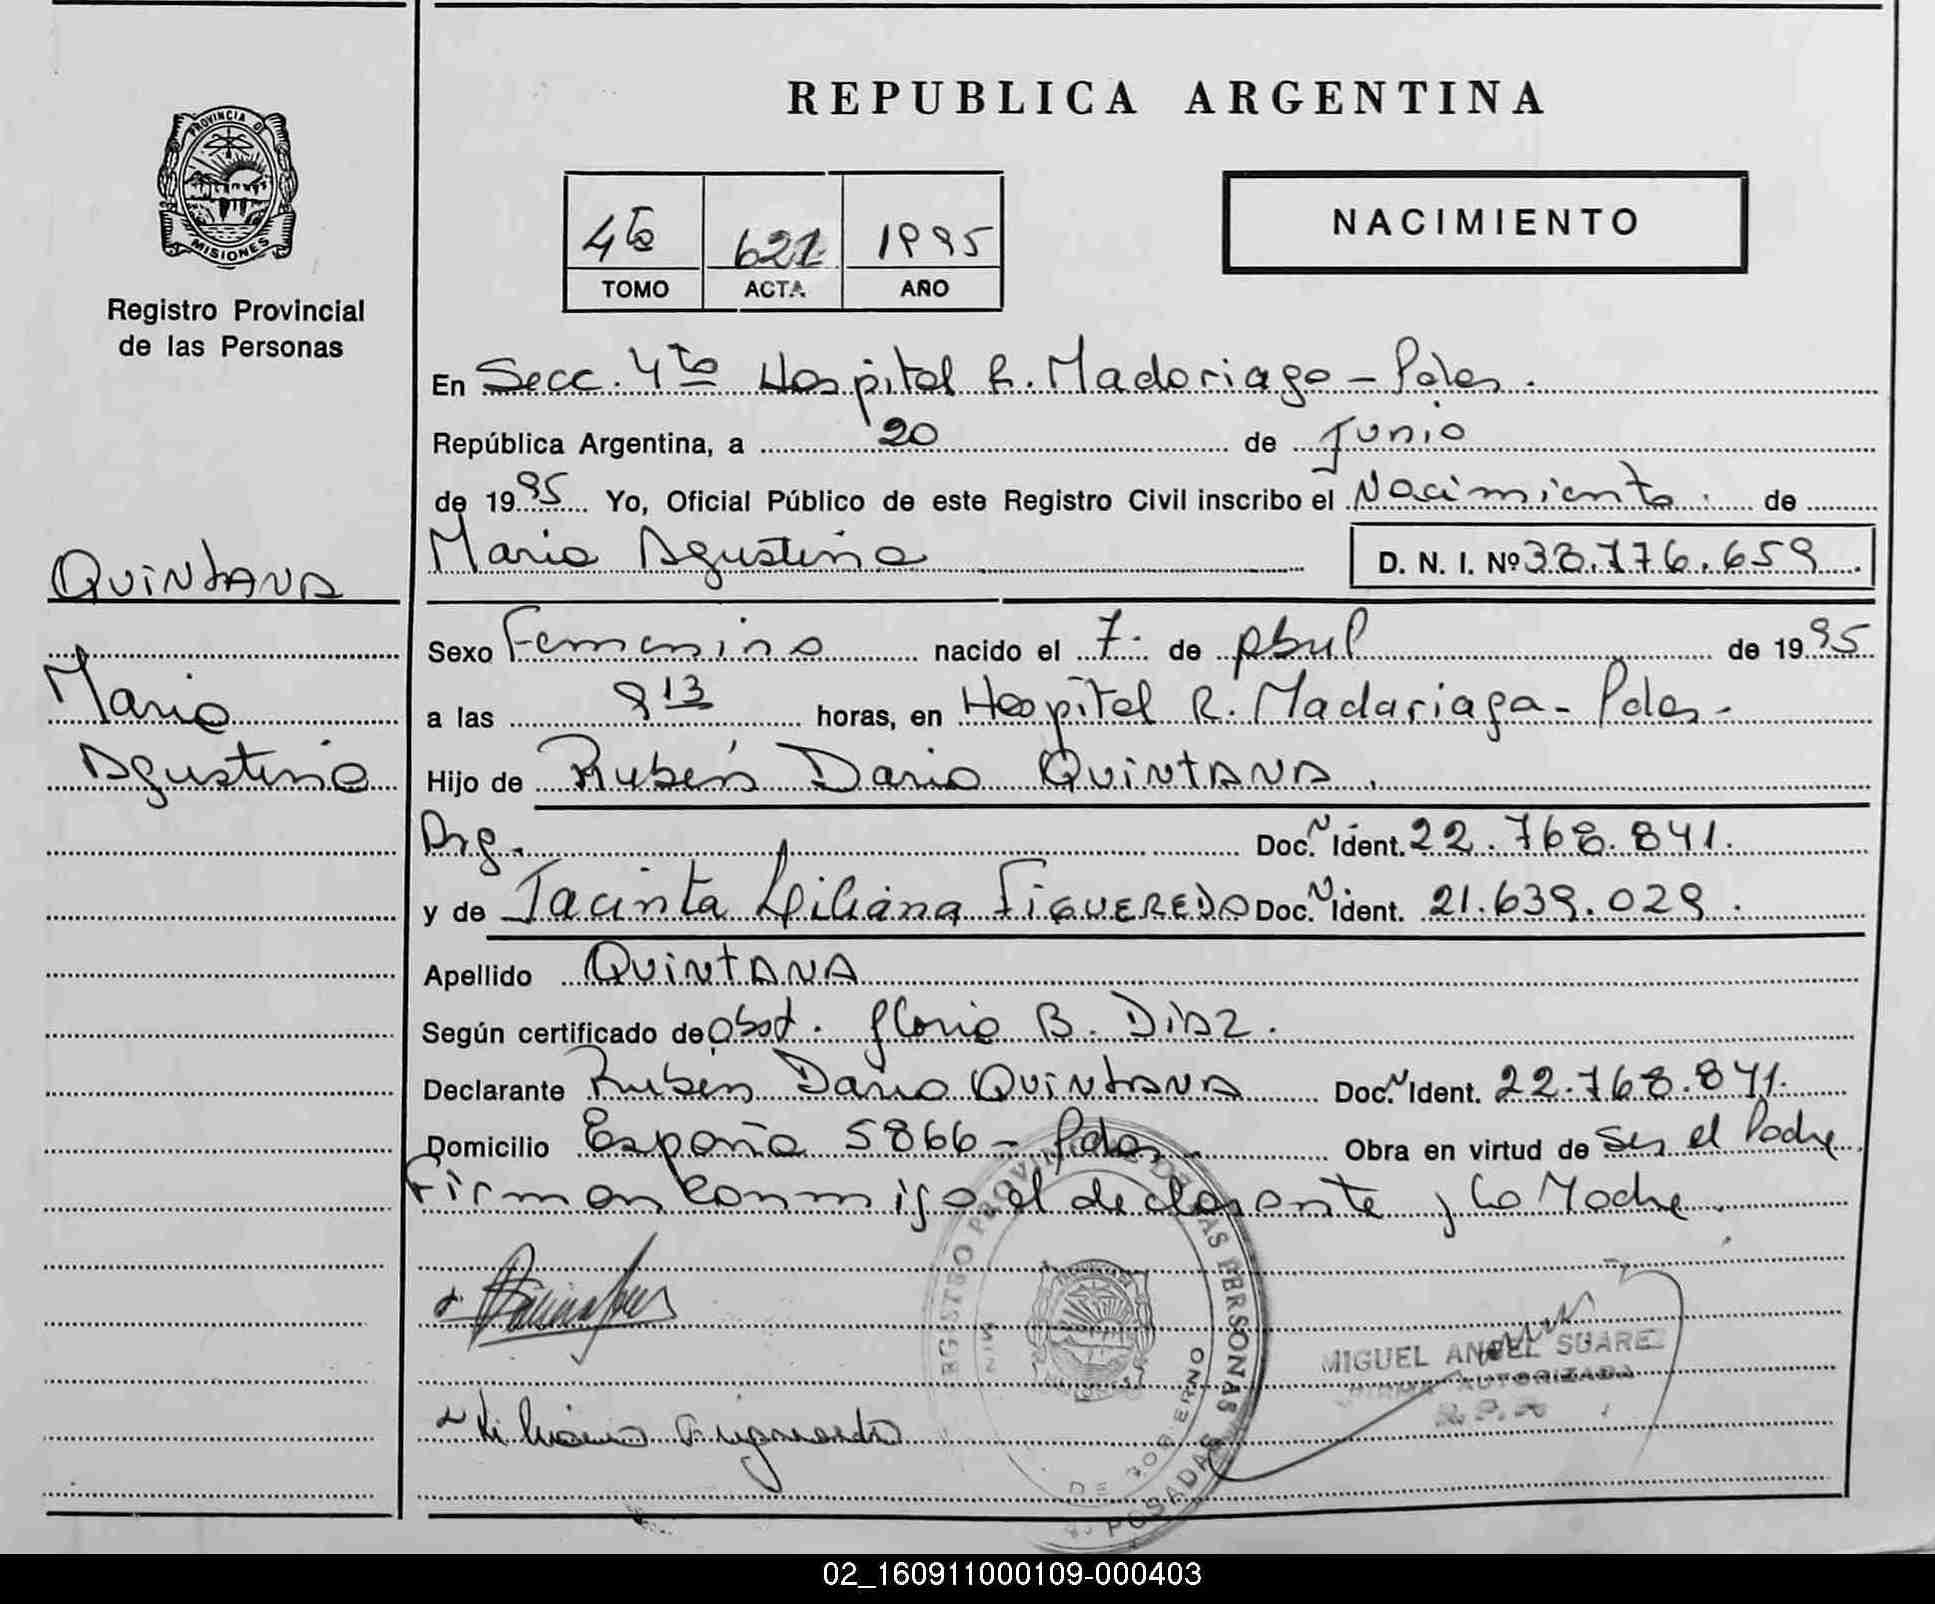 REPUBLICA ARGENTINA
PROVINCIA DE
MISIONES
Registro Provincial
de las Personas
4to 621 1995
TOMO ACTA AÑO
NACIMIENTO
En Secc. 4to Hospital R. Madariaga - Pdas.
República Argentina, a 20 de Junio
de 1995 Yo, Oficial Público de este Registro Civil inscribo el Nacimiento de
Maria Agustina D. N. I. Nº 38.776.659.
QUINTANA
Maria
Agustina
Sexo Femenino nacido el 7 de Abril de 1995
a las 9 13 horas, en Hospital R. Madariaga - Pdas -
Hijo de Rubén Dario QUINTANA.
Arg. Doc. N Ident. 22.768.841.
y de Jacinta Liliana FIGUEREDO Doc. N Ident. 21.639.029.
Apellido QUINTANA
Según certificado de obst. Gloria B. DIAZ.
Declarante Rubén Dario QUINTANA Doc. N Ident. 22.768.841.
Domicilio España 5866 - Pdas. Obra en virtud de Ser el Padre
Firman conmigo el declarante y La Madre.
REGISTRO PROVINCIAL DE LAS PERSONAS
DE GOBERNO
POSADAS
MIGUEL ANGEL SUAREZ
FIRMA AUTORIZADA
R.P.P.
Liliana Figueredo
02_160911000109-000403